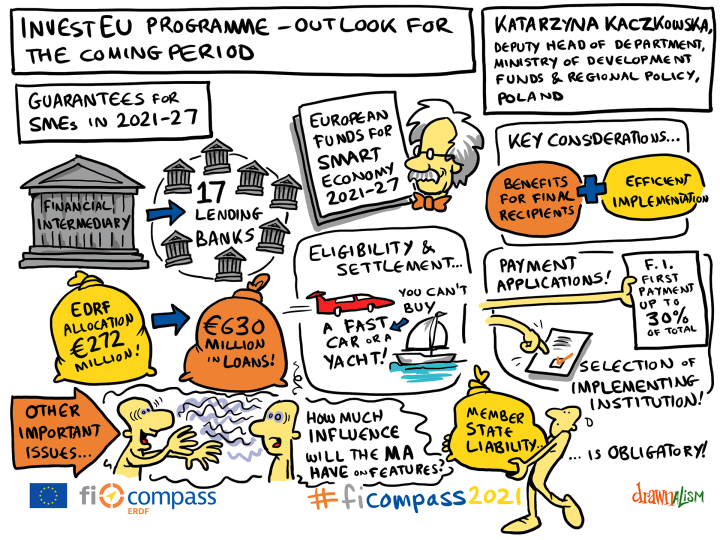 INVESTEU PROGRAMME – OUTLOOK FOR
THE COMING PERIOD
KATARZYNA KACZKOWSKA,
DEPUTY HEAD OF DEPARTMENT,
MINISTRY OF DEVELOPMENT
FUNDS & REGIONAL POLICY,
POLAND
GUARANTEES FOR
SMEs IN 2021-27
FINANCIAL
INTERMEDIARY
17
LENDING
BANKS
EUROPEAN
FUNDS FOR
SMART
ECONOMY
2021-27
KEY CONSIDERATIONS...
BENEFITS
FOR FINAL
RECIPIENTS
EFFICIENT
IMPLEMENTATION
EDRF
ALLOCATION
€272
MILLION!
€630
MILLION
IN LOANS!
ELIGIBILITY &
SETTLEMENT...
YOU CAN'T
BUY
A FAST
CAR OR A
YACHT!
PAYMENT
APPLICATIONS!
F.I.
FIRST
PAYMENT
UP TO
30%
OF TOTAL
SELECTION OF
IMPLEMENTING
INSTITUTION!
OTHER
IMPORTANT
ISSUES...
HOW MUCH
INFLUENCE
WILL THE MA
HAVE ON FEATURES?
MEMBER
STATE
LIABILITY...
... IS OBLIGATORY!
fi compass
ERDF
#ficompass2021
drawnalism